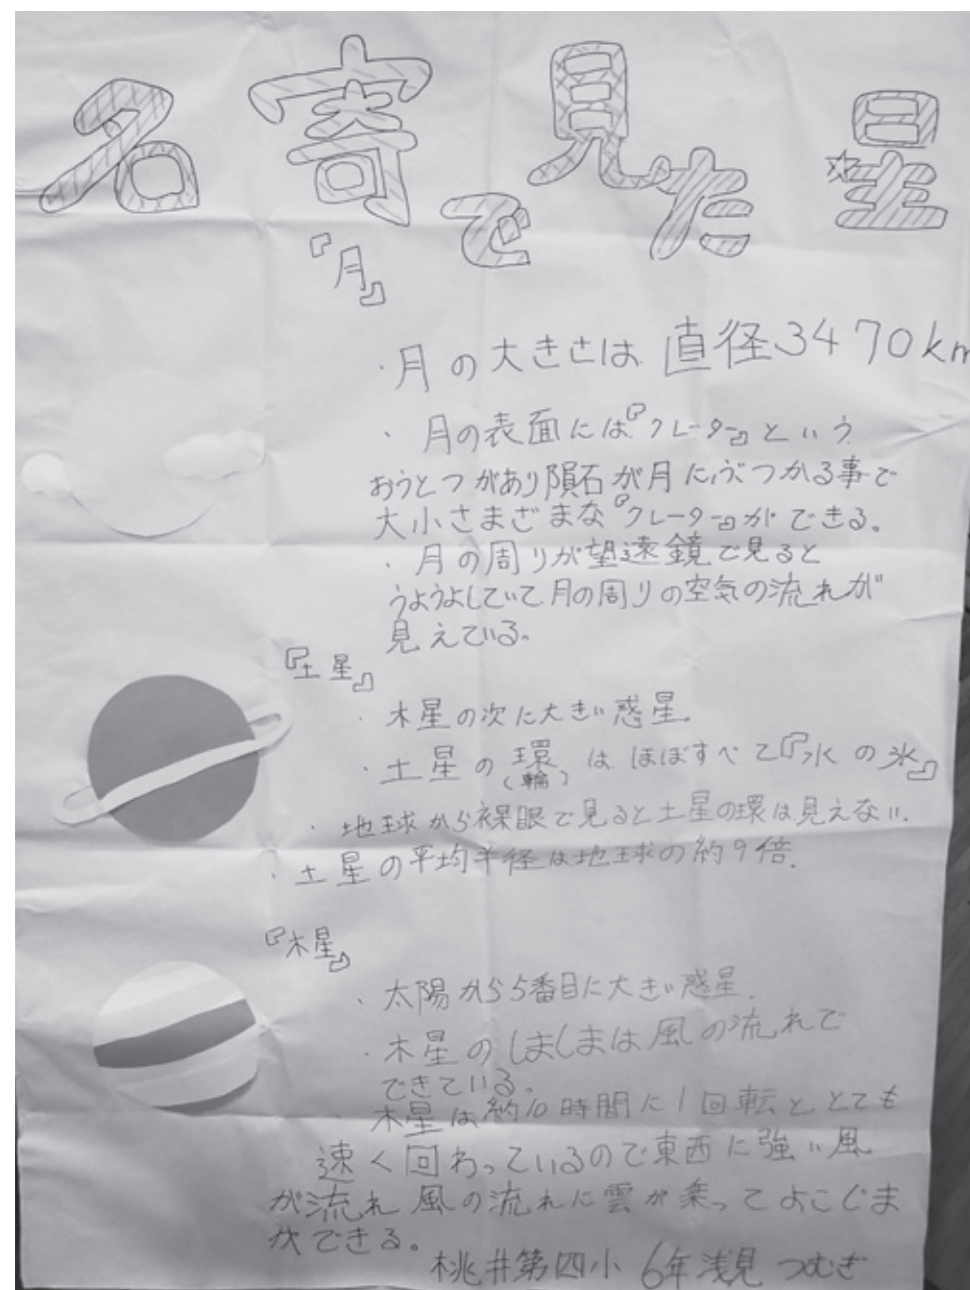 名寄で見た星
『月』
・月の大きさは 直径3470km
・月の表面には『クレーター』という
おうとつがあり隕石が月にぶつかる事で
大小さまざまな『クレーター』ができる。
・月の周りが望遠鏡で見ると
うようよしていて月の周りの空気の流れが
見えている。
『土星』
・木星の次に大きい惑星。
・土星の環(輪)は ほぼすべて『水の氷』
・地球から裸眼で見ると土星の環は見えない。
・土星の平均半径は地球の約9倍.
『木星』
・太陽から5番目に大きい惑星.
・木星のしましまは風の流れで
できている。
木星は約10時間に1回転ととても
速く回わっているので東西に強い風
が流れ 風の流れに雲が乗ってよこじま
ができる。
桃井第四小 6年浅見 つむぎ